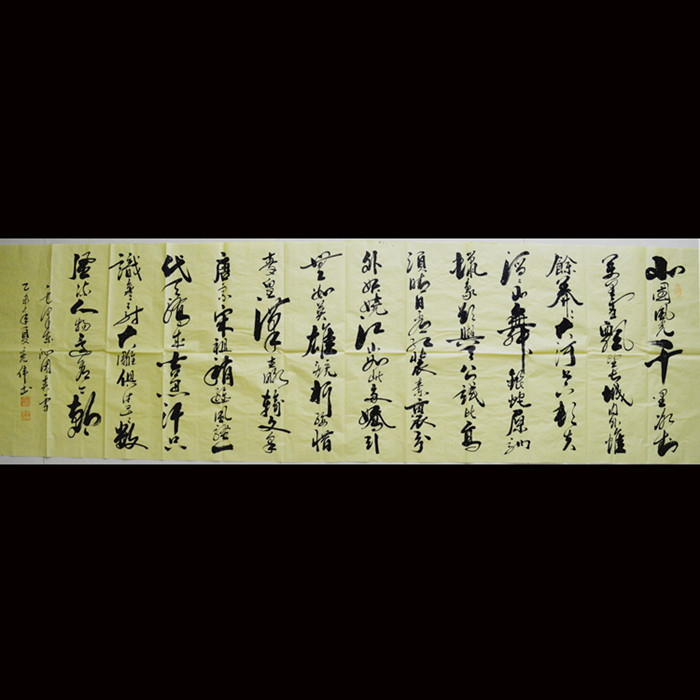 北國風光千里冰封
萬里雪飄望長城內外惟
餘莽莽大河上下頓失
滔滔山舞銀蛇原馳
蠟象欲與天公試比高
須晴日看紅裝素裹分
外妖嬈江山如此多嬌引
無數英雄競折腰惜
秦皇漢武略輸文采
唐宗宋祖稍遜風騷一
代天驕成吉思汗只
識彎弓射大雕俱往矣數
風流人物還看今朝
毛澤東沁園春雪
乙未年夏書